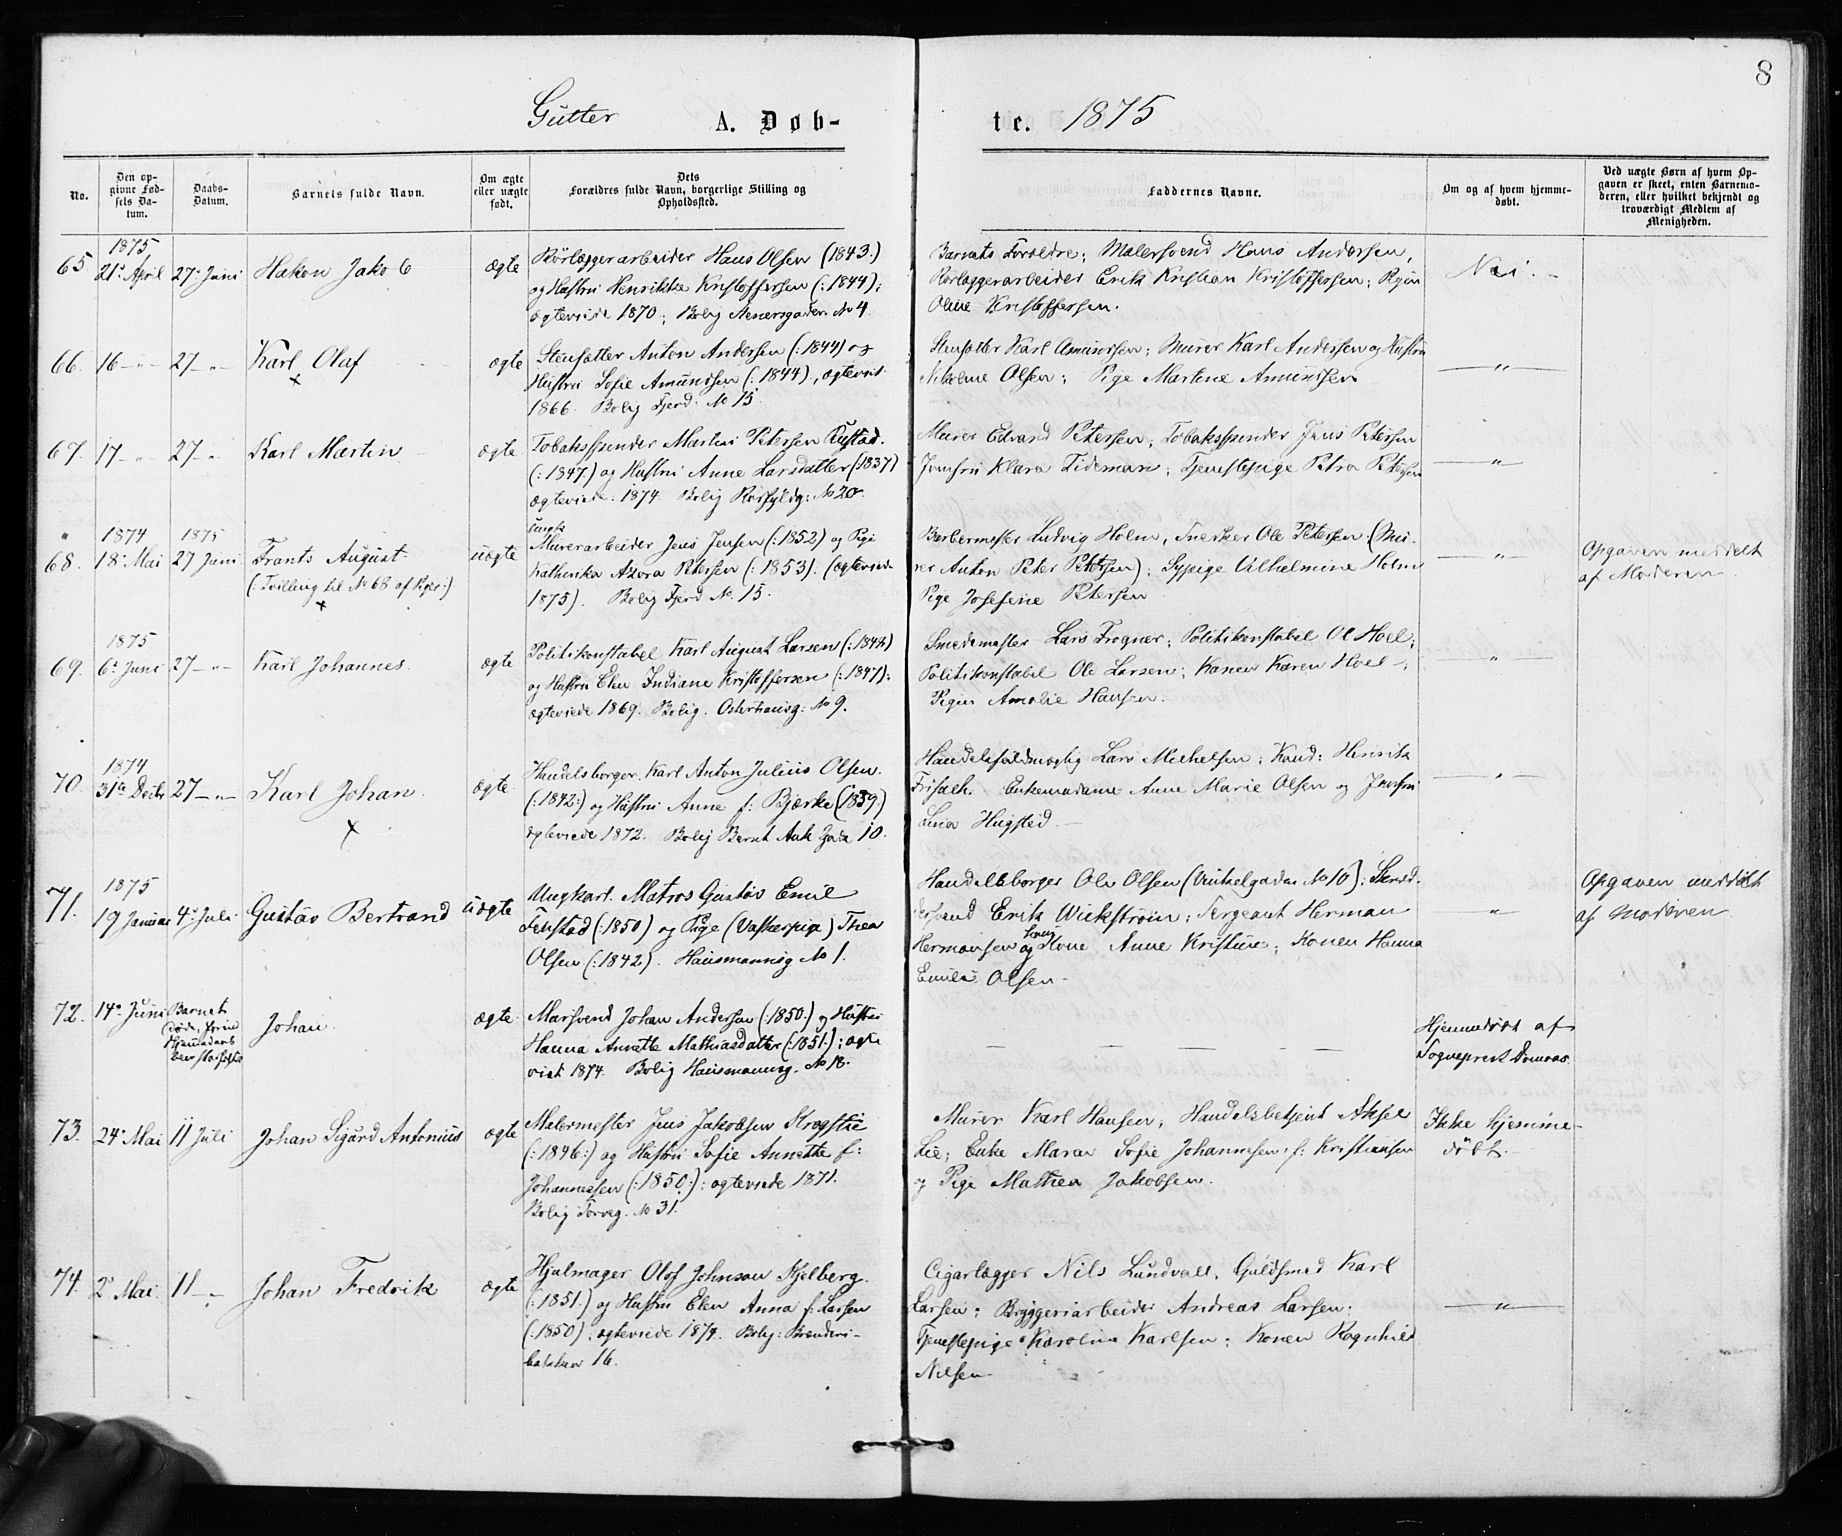 8
Gutter A. Døb- te. 1875
No.
Den op-
givne Fød-
sels Da-
tum.
Daabs-
Datum.
Barnets fulde Navn.
Om ægte
eller uægte
født.
Dets
Forældres fulde Navn, borgerlige Stilling og
Opholdssted.
Faddernes Navne.
Om og af hvem hjemme-
døbt.
Ved uægte Børn af hvem Op-
gaven er skeet, enten Barnemo-
deren, eller hvilket bekjendt og
troværdigt Medlem af
Menigheden.
1875
65 21. April 27. Juni Hakon Jakob ægte
Rörlæggerarbeider Hans Olsen (1843.)
og Hustru Henrikke Kristoffersen (: 1844);
ægteviede 1870; Bolig No 4.
Barnets Forældre; Malersvend Hans Andersen,
Rørlæggerarbeider Erik Kristian Kristoffersen; Pigen
Oline Kristoffersen.
Nei. -
66. 16 - „ - 27 - „ - Karl Olaf ægte
x
Stensætter Anton Andersen (: 1844) og
Hustru Sofie Amundsen (: 1844), ægteviet
1866. Bolig Fjerd. No 15.
Stensætter Karl Amundsen; Murer Karl Andersen og Hustru
Nikoline Olsen; Pige Martine Amundsen
— „ —
67. 17 - „ - 27 - „ Karl Martin - ægte.
Tobaksspinder Martin Petersen Rustad.
(: 1847) og Hustru Anne Larsdatter (: 1837)
ægteviede: 1874. Bolig No 20.
Murer Edvard Petersen; Tobaksspinder Jens Petersen
Jomfru Klara Tideman; Tjenestepige Petra Petersen
— „ —
1874 1875
68. 18. Mai 27 Juni Frants August uægte
(: Tvilling til No 68 af Piger:)
x
Ungk.
Murerarbeider Jens Jensen (: 1852) og Pige
Kathinka Azora Petersen (: 1853). (ægteviede
1875). Bolig Fjerd No. 15.
Barbermester Ludvig Holm, Snedker Ole Petersen (Mu-
rer Anton Peter Petersen); Sypige Vilhelmine Holm
Pige Josefine Petersen
— „ —
Opgaven meddelt
af Moderen
1875
69. 6. Juni 27 - „ - Karl Johannes. ægte
Politikonstabel Karl August Larsen (: 1848)
og Hustru Elen Indiane Kristoffersen (: 1847);
ægteviede 1869. Bolig. Osterhausg: No 9.
Smedemester Lars Frogner; Politikonstabel Ol Hoel;
Politikonstabel Ole Larsen; Konen Karen Hoel -;
Pigen Amalie Hansen.
— „ —
1874
70. 31te Decbr 27 - „ - Karl Johan. ægte.
x
Handelsborger. Karl Anton Julius Olsen.
(: 1842:) og Hustru Anne f: Bjerke (: 1839.)
ægteviede 1872. Bolig Bernt Ank Gade 10.
Handelsfuldmægtig Lars Michelsen; Kand: Henrik
Enkemadame Anne Marie Olsen og Jomfru
Lina Hugsted. —
— „ —
1875
71. 19 Januar 4. Juli Gustav Bertrand uægte
Ungkarl. Matros Gustav Emil
Fenstad (: 1850) og Pige (Vaskerpige) Thea
Olsen (: 1842). Hausmannsg No 1.
Handelsborger Ole Olsen (Vinkelgaden No 10); Skræd-
dersvend Erik Wickstrøm; Sergeant Herman
Hermansen og Kone Anne Kristine; Konen Hanna
Emilie Olsen -
„
Opgaven meddelt
af Moderen.
72. 14. Juni Barnet
døde, forind
Hjemmedaab
Johan. ægte.
Mursvend Johan Andersen (: 1850:) og Hustru
Hanna Annette Mathiasdatter (: 1851:); ægte
viet 1874. Bolig Hausmannsg. No 18.
— — — —
Hjemmedøbt af
Sogneprest Domaas.
73. 24. Mai 11 Juli Johan Sigurd Antonius ægte
Malermester Jens Jakobsen Krogstie
(: 1846:) og Hustru Sofie Annette f:
Johannessen (: 1850:): ægteviede 1871.
Bolig Torveg. No 31.
Murer Karl Hansen; Handelsbetjent Aksel
Lie; Enke Maren Sofie Johannesen, f: Kristiansen
og Pige Mathea Jakobsen.
Ikke hjemme-
døbt. -
74. 2. Mai. 11 - „ Johan Fredrik ægte
Hjulmager Olof Johnson Kjelberg.
(: 1851:) og Hustru Elen Anna f: Larsen
(: 1850); ægteviede 1874. Bolig: Brenderi-
bakken 16.
Cigarlægger Nils Lundvall, Guldsmed Karl
Larsen; Bryggeriarbeider Andreas Larsen;
Tjenestepige Karoline Karlsen; Konen Ragnhild
Nilsen
— „ —